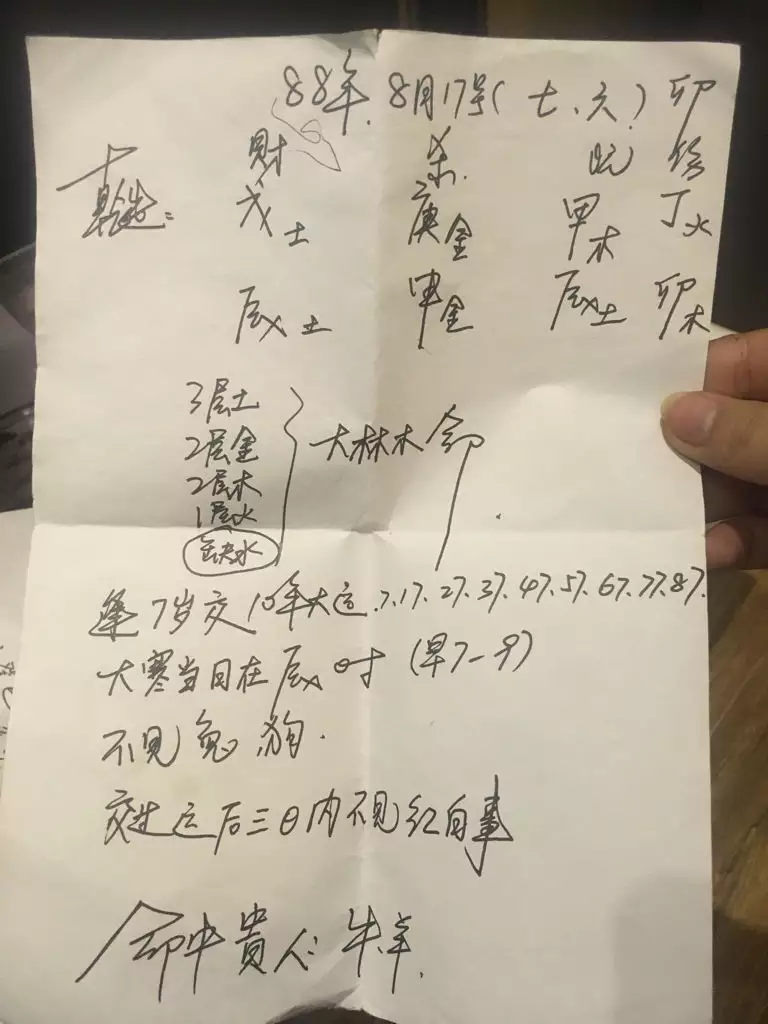 88年.8月17号(七、六)卯
财 杀. 元 伤
乾造: 戊土 庚金 甲木 丁火
辰土 申金 辰土 卯木
3层土
2层金
2层木
1层火
缺水
大林木命
逢7岁交10年大运.7.17.27.37.47.57.67.77.87.
大寒当日在辰时(早7-9)
不见兔狗.
交进运后三日内不见红白事
命中贵人:牛羊.